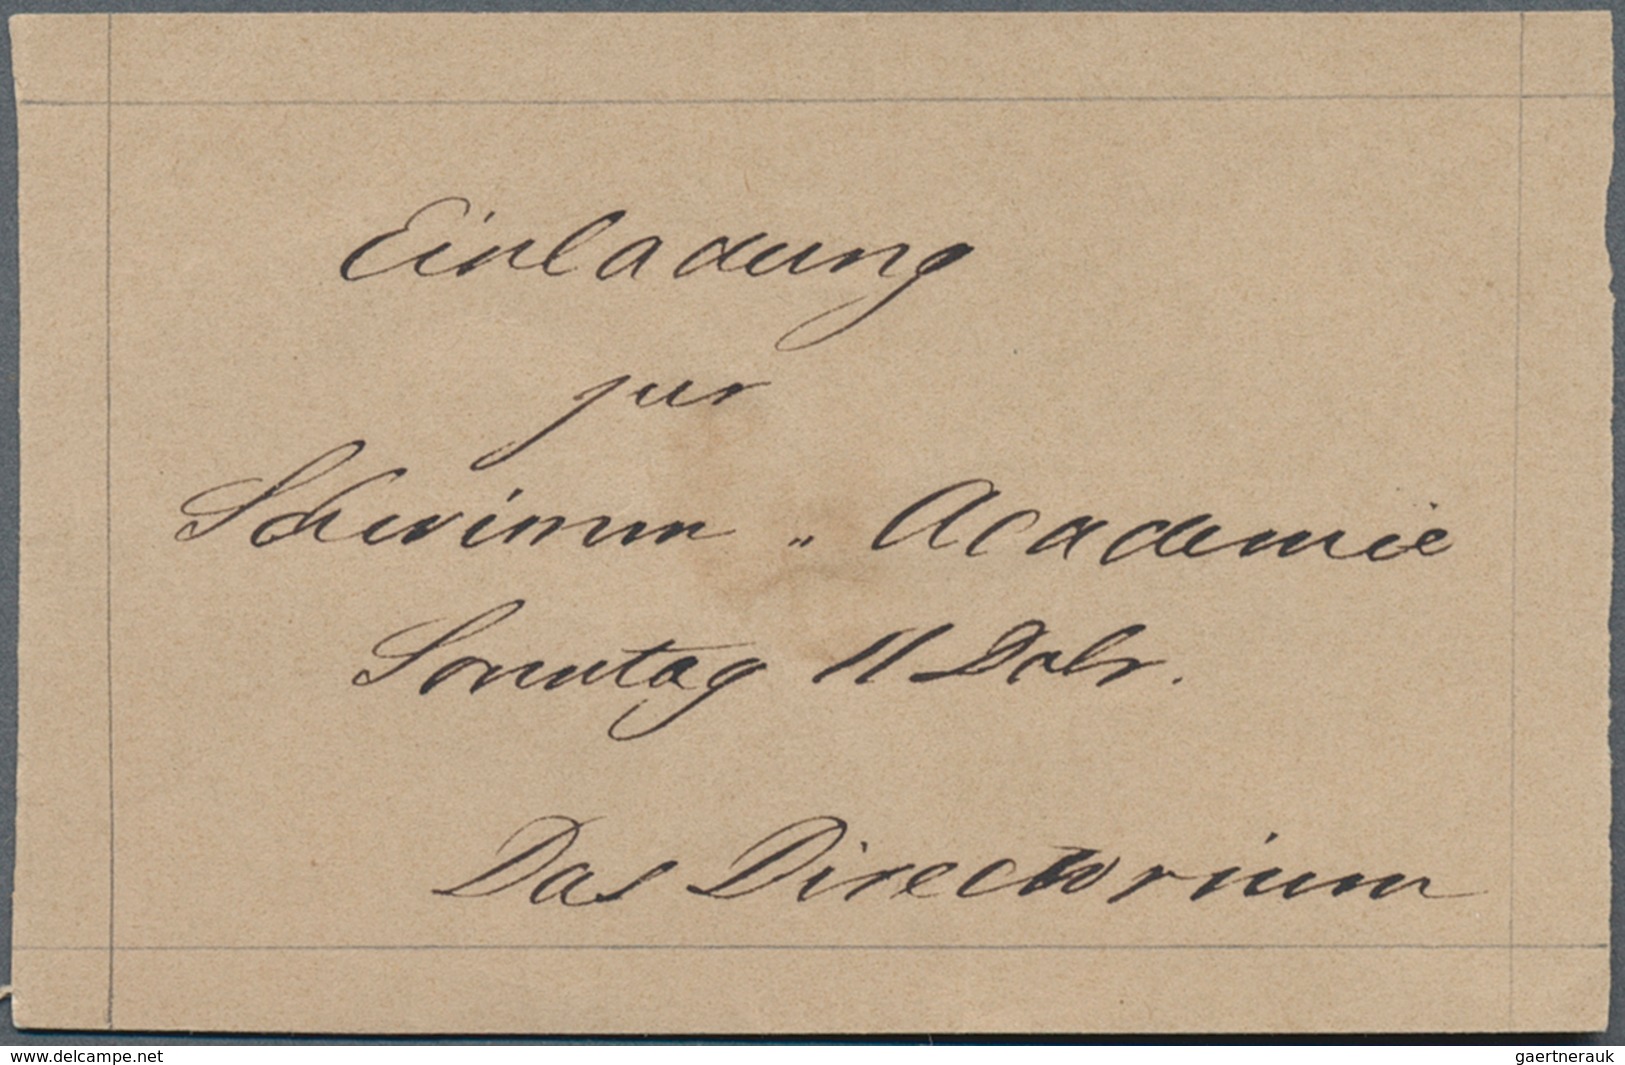 Einladung
zur
Schwimm - Academie
Sonntag 11
Das Directorium
www.delcampe.net
gaertnerauk